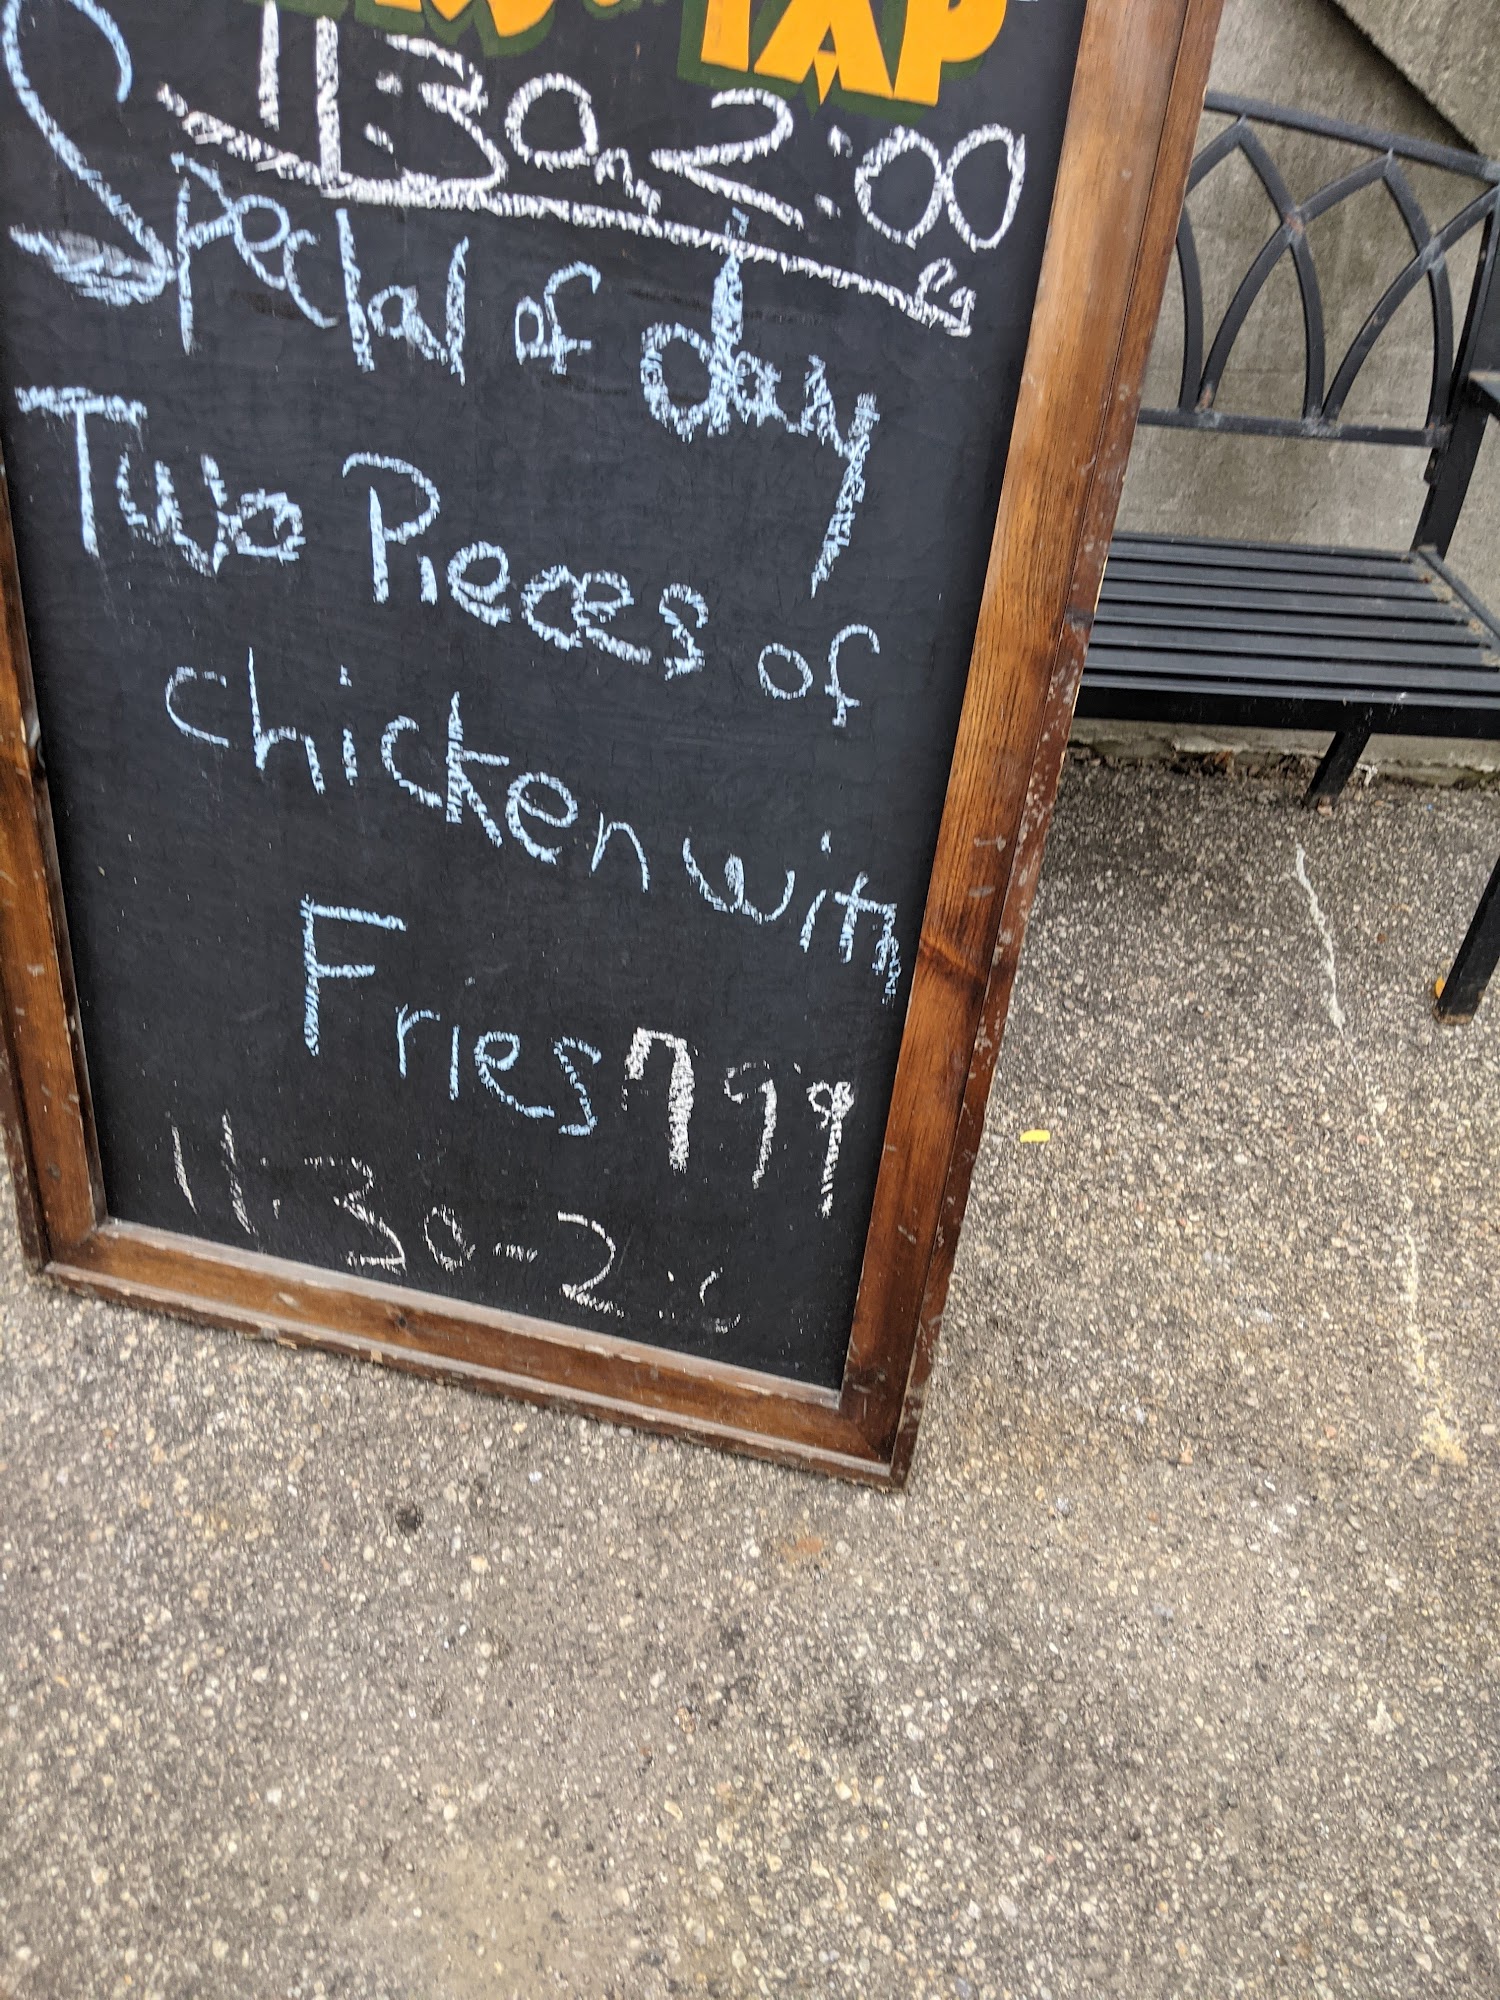 TAP
11:30 2:00
Special of day
Two Pieces of
chicken with
Fries 7 99
11:30-2: